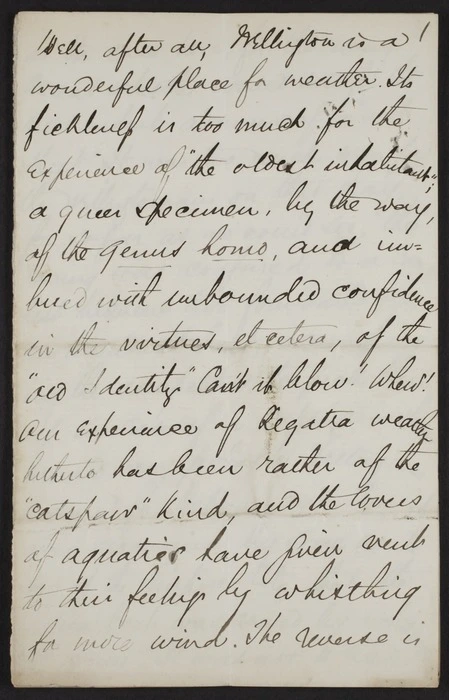 Well, after all, Wellington is a
wonderful place for weather. Its
fickleness is too much for the
experience of "the oldest inhabitant";
a queer specimen, by the way,
of the genus homo, and im=
bued with unbounded confidence
in the virtues, et cetera, of the
"old Identity". Can't it blow! Whew!
Our experience of Regatta weather
hitherto has been rather of the
"catspaw" kind, and the lovers
of aquatics have given vent
to their feelings by whistling
for more wind. The reverse is